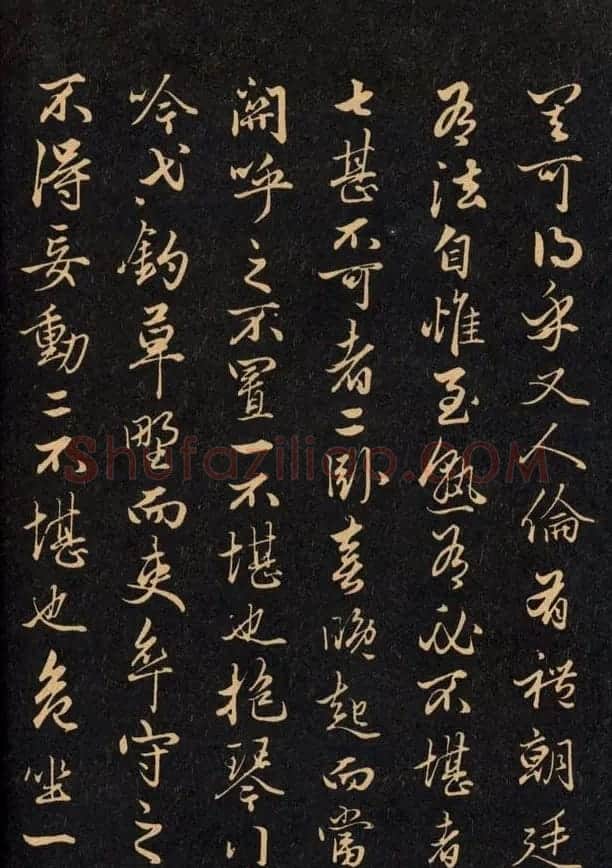 其可得乎又人倫有禮朝廷
有法自惟至熟有必不堪者
七甚不可者二卧喜晚起而當
關呼之不置一不堪也抱琴行
吟弋釣草野而吏卒守之
不得妄動二不堪也危坐一
Shufaziliao.COM